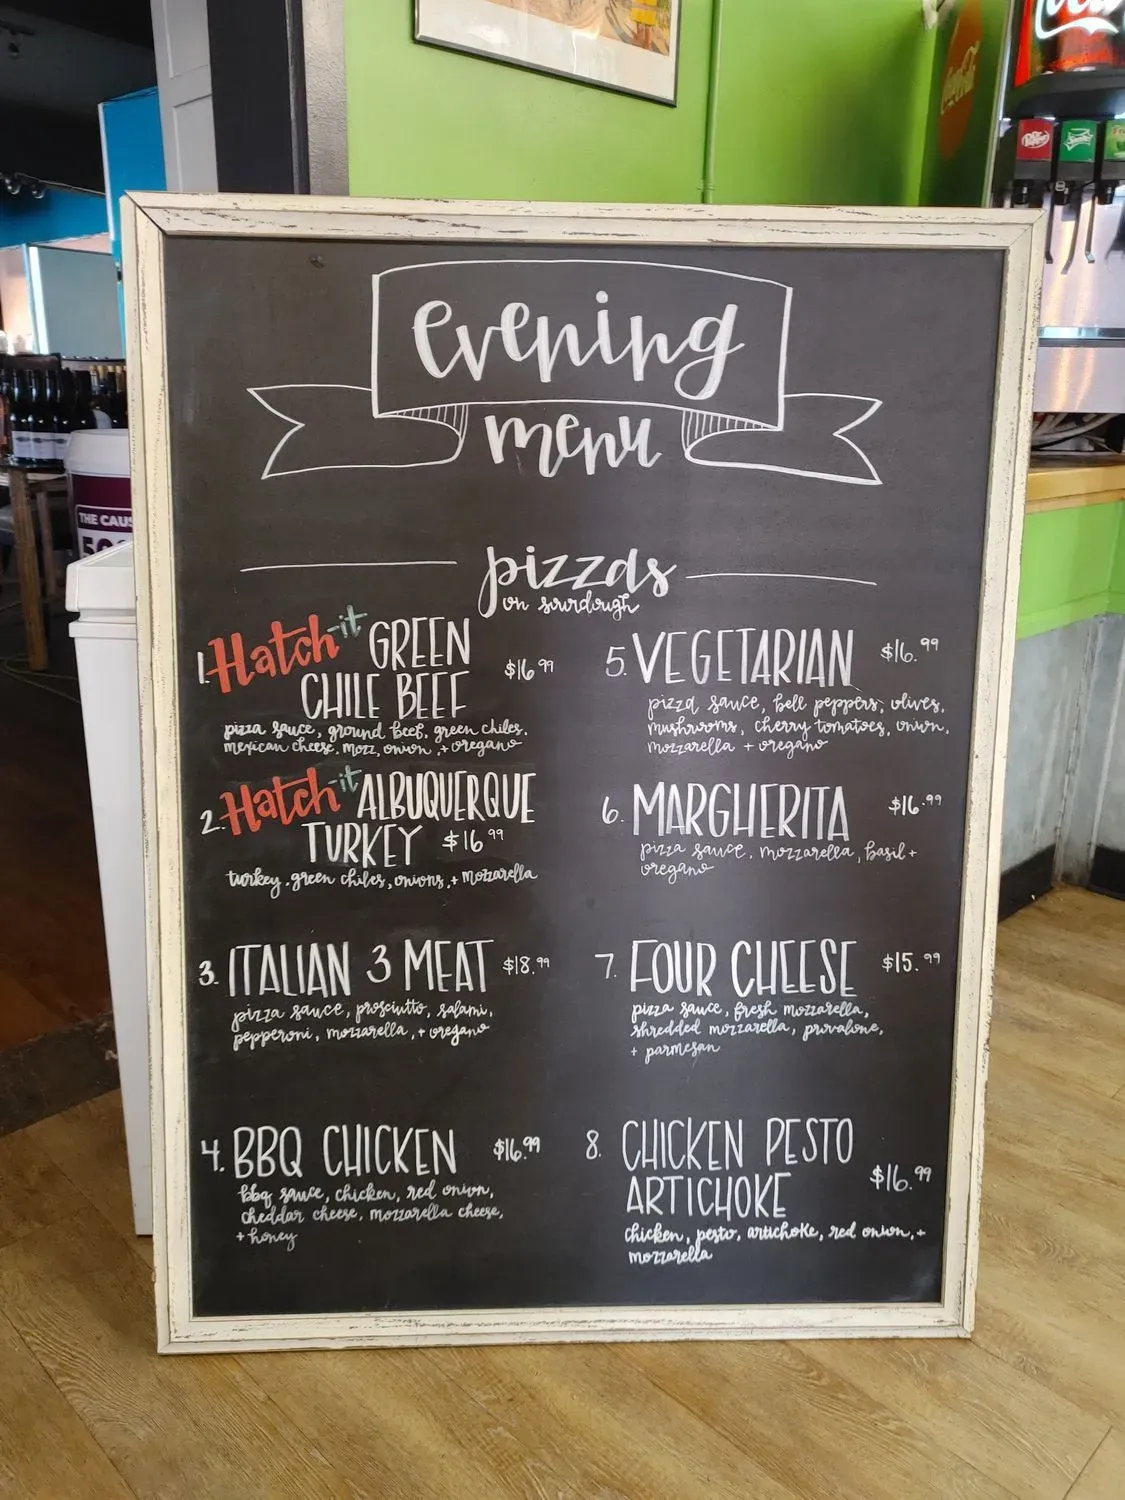 Coca-Cola
Dr Pepper
THE CAUS
evening
menu
pizzas
on sourdough
1. Hatch-it GREEN
CHILE BEEF $16.99
pizza sauce, ground beef, green chiles,
mexican cheese, mozz, onion, + oregano
2. Hatch-it ALBUQUERQUE
TURKEY $16.99
turkey, green chiles, onions, + mozzarella
3. ITALIAN 3 MEAT $18.99
pizza sauce, prosciutto, salami,
pepperoni, mozzarella, + oregano
4. BBQ CHICKEN $16.99
bbq sauce, chicken, red onion,
cheddar cheese, mozzarella cheese,
+ honey
5. VEGETARIAN $16.99
pizza sauce, bell peppers, olives,
mushrooms, cherry tomatoes, onion,
mozzarella + oregano
6. MARGHERITA $16.99
pizza sauce, mozzarella, basil +
oregano
7. FOUR CHEESE $15.99
pizza sauce, fresh mozzarella,
shredded mozzarella, provalone,
+ parmesan
8. CHICKEN PESTO
ARTICHOKE $16.99
chicken, pesto, artichoke, red onion, +
mozzarella